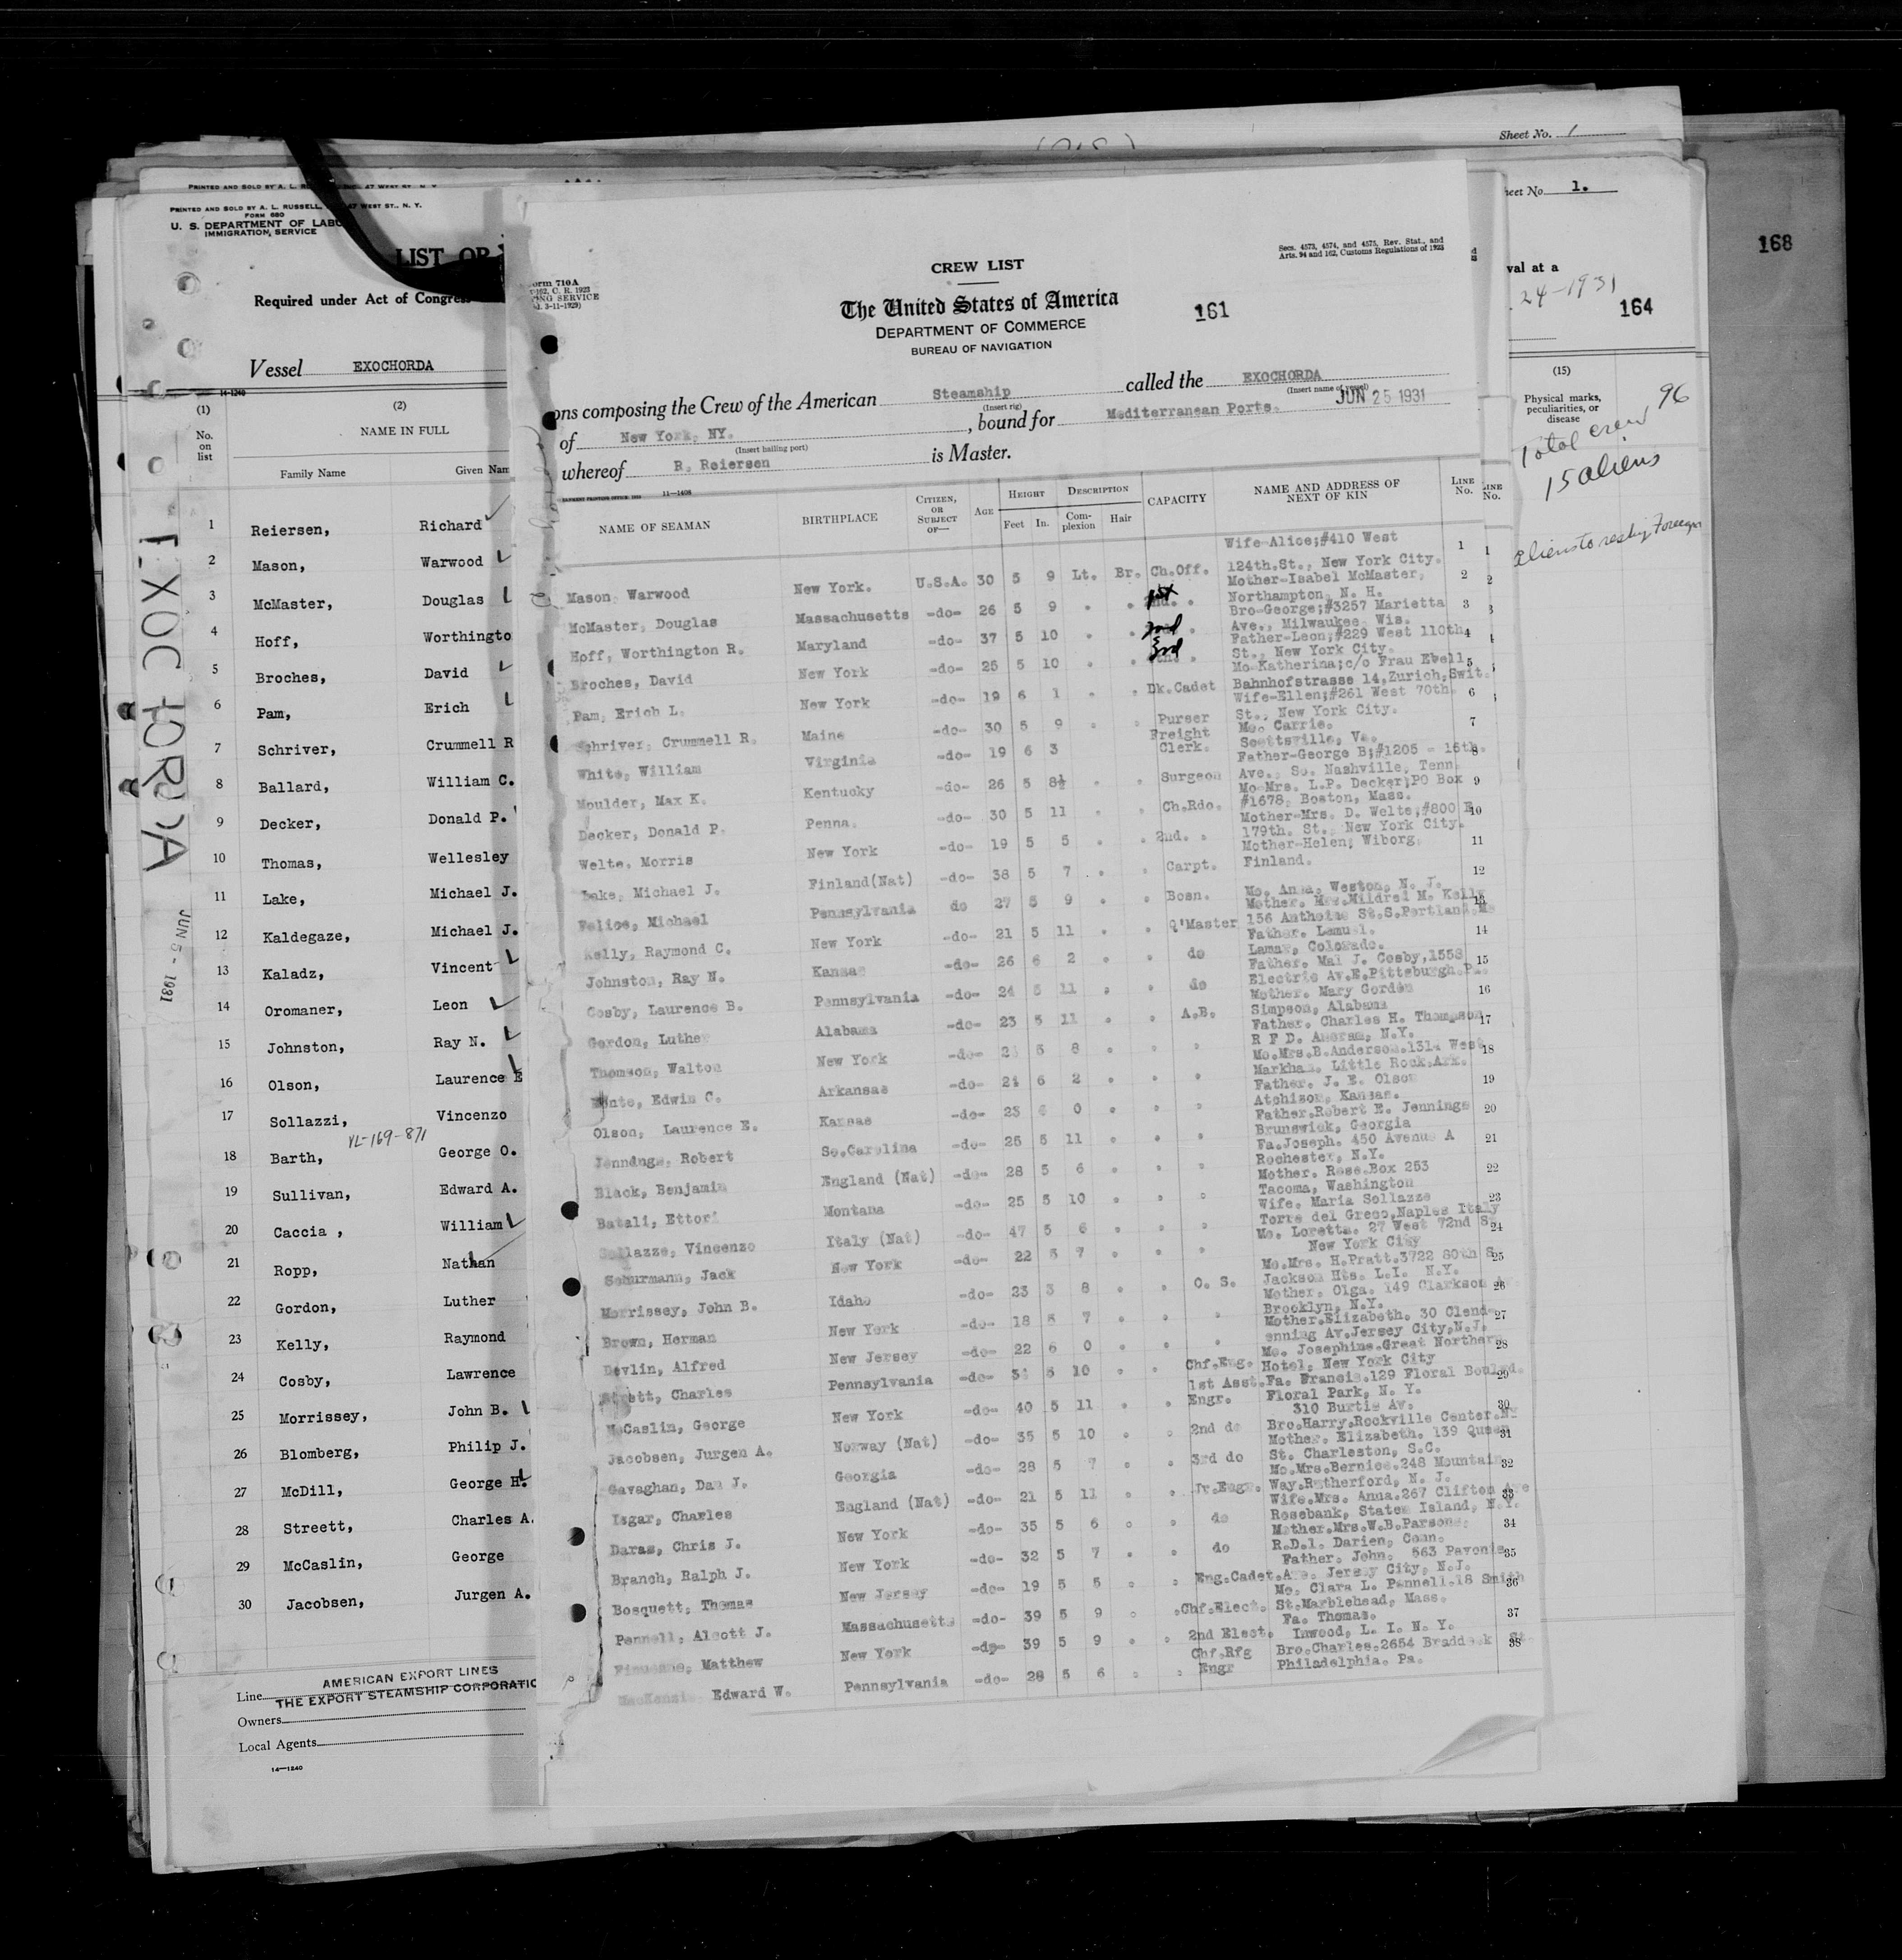 Sheet No. 1
PRINTED AND SOLD BY A. L. RUSSELL, 47 WEST ST., N. Y.
FORM 680
U. S. DEPARTMENT OF LABO
IMMIGRATION SERVICE
LIST OR
Required under Act of Congress
Vessel EXOCHORDA
14-1240
(1) (2)
No. on list
NAME IN FULL
Family Name Given Nam
1 Reiersen, Richard
2 Mason, Warwood
3 McMaster, Douglas
4 Hoff, Worthingto
5 Broches, David
6 Pam, Erich
7 Schriver, Crummell R
8 Ballard, William C.
9 Decker, Donald P.
10 Thomas, Wellesley
11 Lake, Michael J.
12 Kaldegaze, Michael J.
13 Kaladz, Vincent
14 Oromaner, Leon
15 Johnston, Ray N.
16 Olson, Laurence E
17 Sollazzi, Vincenzo
VL-169-871
18 Barth, George O.
19 Sullivan, Edward A.
20 Caccia , William
21 Ropp, Nathan
22 Gordon, Luther
23 Kelly, Raymond
24 Cosby, Lawrence
25 Morrissey, John B.
26 Blomberg, Philip J.
27 McDill, George H.
28 Streett, Charles A.
29 McCaslin, George
30 Jacobsen, Jurgen A.
Line AMERICAN EXPORT LINES
THE EXPORT STEAMSHIP CORPORATIO
Owners
Local Agents
14-1240
EXOCHORDA
JUN 5 - 1931
orm 710A
162, C. R. 1923
ING SERVICE
3-11-1929)
CREW LIST
The United States of America
DEPARTMENT OF COMMERCE
BUREAU OF NAVIGATION
161
Secs. 4573, 4574, and 4575, Rev. Stat., and
Arts. 94 and 162, Customs Regulations of 1923
ons composing the Crew of the American Steamship called the EXOCHORDA
(Insert rig) (Insert name of vessel)
JUN 25 1931
of New York, NY. , bound for Mediterranean Ports.
(Insert hailing port)
whereof R. Reiersen is Master.
11-1408
NAME OF SEAMAN BIRTHPLACE CITIZEN, OR SUBJECT OF— AGE HEIGHT Feet In. DESCRIPTION Complexion Hair CAPACITY NAME AND ADDRESS OF NEXT OF KIN LINE No.
Mason, Warwood New York. U.S.A. 30 5 9 Lt. Br. Ch.Off. Wife-Alice;#410 West 124th.St., New York City. 1
McMaster, Douglas Massachusetts -do- 26 5 9 1st Mother-Isabel McMaster, Northampton, N. H. 2
Hoff, Worthington R. Maryland -do- 37 5 10 2nd Bro-George;#3257 Marietta Ave., Milwaukee Wis. 3
Broches, David New York -do- 25 5 10 3rd Father-Leon;#229 West 110th. St., New York City. 4
Pam, Erich L. New York -do- 19 6 1 Dk.Cadet Mo-Katherina;c/o Frau Ebell, Bahnhofstrasse 14,Zurich,Swit. 5
Schriver, Crummell R. Maine -do- 30 5 9 Purser Wife-Ellen;#261 West 70th. St., New York City. 6
White, William Virginia -do- 19 6 3 Freight Clerk. Mo. Carrie. Scottsville, Va. 7
Moulder, Max K. Kentucky -do- 26 5 8½ Surgeon Father-George B;#1205 - 15th. Ave., So. Nashville, Tenn 8
Decker, Donald P. Penna. -do- 30 5 11 Ch.Rdo. Mo-Mrs. L.P. Decker;PO Box #1678, Boston, Mass. 9
Welte, Morris New York -do- 19 5 5 2nd. Mother-Mrs. D. Welte;#800 E 179th. St., New York City. 10
Lake, Michael J. Finland(Nat) -do- 38 5 7 Carpt. Mother-Helen; Wiborg, Finland. 11
Felice, Michael Pennsylvania do 27 5 9 Bosn. Mo. Anna, Weston, N. J. 12
Kelly, Raymond C. New York -do- 21 5 11 Q'Master Mother. Mrs.Mildred M. Kelly 156 Anthoine St.S.Portland.Me 13
Johnston, Ray N. Kansas -do- 26 6 2 do Father. Lemuel. Lamar, Colorado. 14
Cosby, Laurence B. Pennsylvania -do- 24 5 11 do Father. Mal J. Cosby,1553 Electric Av.E.Pittsburgh.Pa. 15
Gordon, Luther Alabama -do- 23 5 11 A.B. Mother. Mary Gordon Simpson, Alabama 16
Thomson, Walton New York -do- 5 8 Father. Charles H. Thompson R F D. Ancram, N.Y. 17
Edwin C. Arkansas -do- 6 2 Mo.Mrs.B.Anderson.1314 West Markham. Little Rock.Ark. 18
Olson, Laurence E. Kansas -do- 23 6 0 Father. J. E. Olson Atchison, Kansas. 19
Jennings, Robert So.Carolina -do- 25 5 11 Father.Robert E. Jennings Brunswick, Georgia 20
Black, Benjamin England (Nat) -do- 28 5 6 Fa.Joseph. 450 Avenue A Rochester, N.Y. 21
Batali, Ettori Montana -do- 25 5 10 Mother. Rose.Box 253 Tacoma, Washington 22
Sollazze, Vincenzo Italy (Nat) -do- 47 5 6 Wife. Maria Sollazze Torre del Greco,Naples Italy 23
Schurmann, Jack New York -do- 22 5 7 Mo. Loretta. 27 West 72nd St New York City 24
Morrissey, John B. Idaho -do- 23 5 8 O. S. Mo.Mrs. H.Pratt.3722 80th S Jackson Hts. L.I. N.Y. 25
Brown, Herman New York -do- 18 5 7 Mother. Olga. 149 Clarkson Brooklyn, N.Y. 26
Devlin, Alfred New Jersey -do- 22 6 0 Mother.Elizabeth. 30 Clendenning Av.Jersey City,N.J. 27
Strett, Charles Pennsylvania -do- 5 10 Chf.Eng. Mo. Josephine.Great Northern Hotel, New York City 28
McCaslin, George New York -do- 40 5 11 1st Asst. Engr. Fa. Francis.129 Floral Boulvd. Floral Park, N. Y. 29
Jacobsen, Jurgen A. Norway (Nat) -do- 35 5 10 2nd do 310 Burtis Av. Bro.Harry.Rockville Center.NY 30
Gavaghan, Dan J. Georgia -do- 28 5 7 3rd do Mother. Elizabeth. 139 Queen St. Charleston, S.C. 31
Isgar, Charles England (Nat) -do- 21 5 11 Jr.Engr. Mo.Mrs.Bernice.248 Mountain Way.Rutherford, N. J. 32
Daras, Chris J. New York -do- 35 5 6 do Wife.Mrs. Anna.267 Clifton Ave Rosebank, Staten Island, N.Y. 33
Branch, Ralph J. New York -do- 32 5 7 do Mother.Mrs.W.B.Parsons, R.D.1. Darien, Conn. 34
Bosquett, Thomas New Jersey -do- 19 5 5 Eng.Cadet. Father. John. 563 Pavonia Ave. Jersey City, N.J. 35
Pennell, Alcott J. Massachusetts -do- 39 5 9 Chf.Elect. Mo. Clara L. Pennell.18 Smith St.Marblehead, Mass. 36
Matthew New York -do- 39 5 9 2nd Elect. Fa. Thomas. Inwood, L. I. N. Y. 37
MacKenzie Edward W. Pennsylvania -do- 28 5 6 Chf.Rfg Engr Bro.Charles.2654 Braddock St. Philadelphia. Pa. 38
eet No. 1.
val at a
24-1931
164
(15)
Physical marks, peculiarities, or disease
96
Total crew
15 aliens
aliens to reship Foreign
168